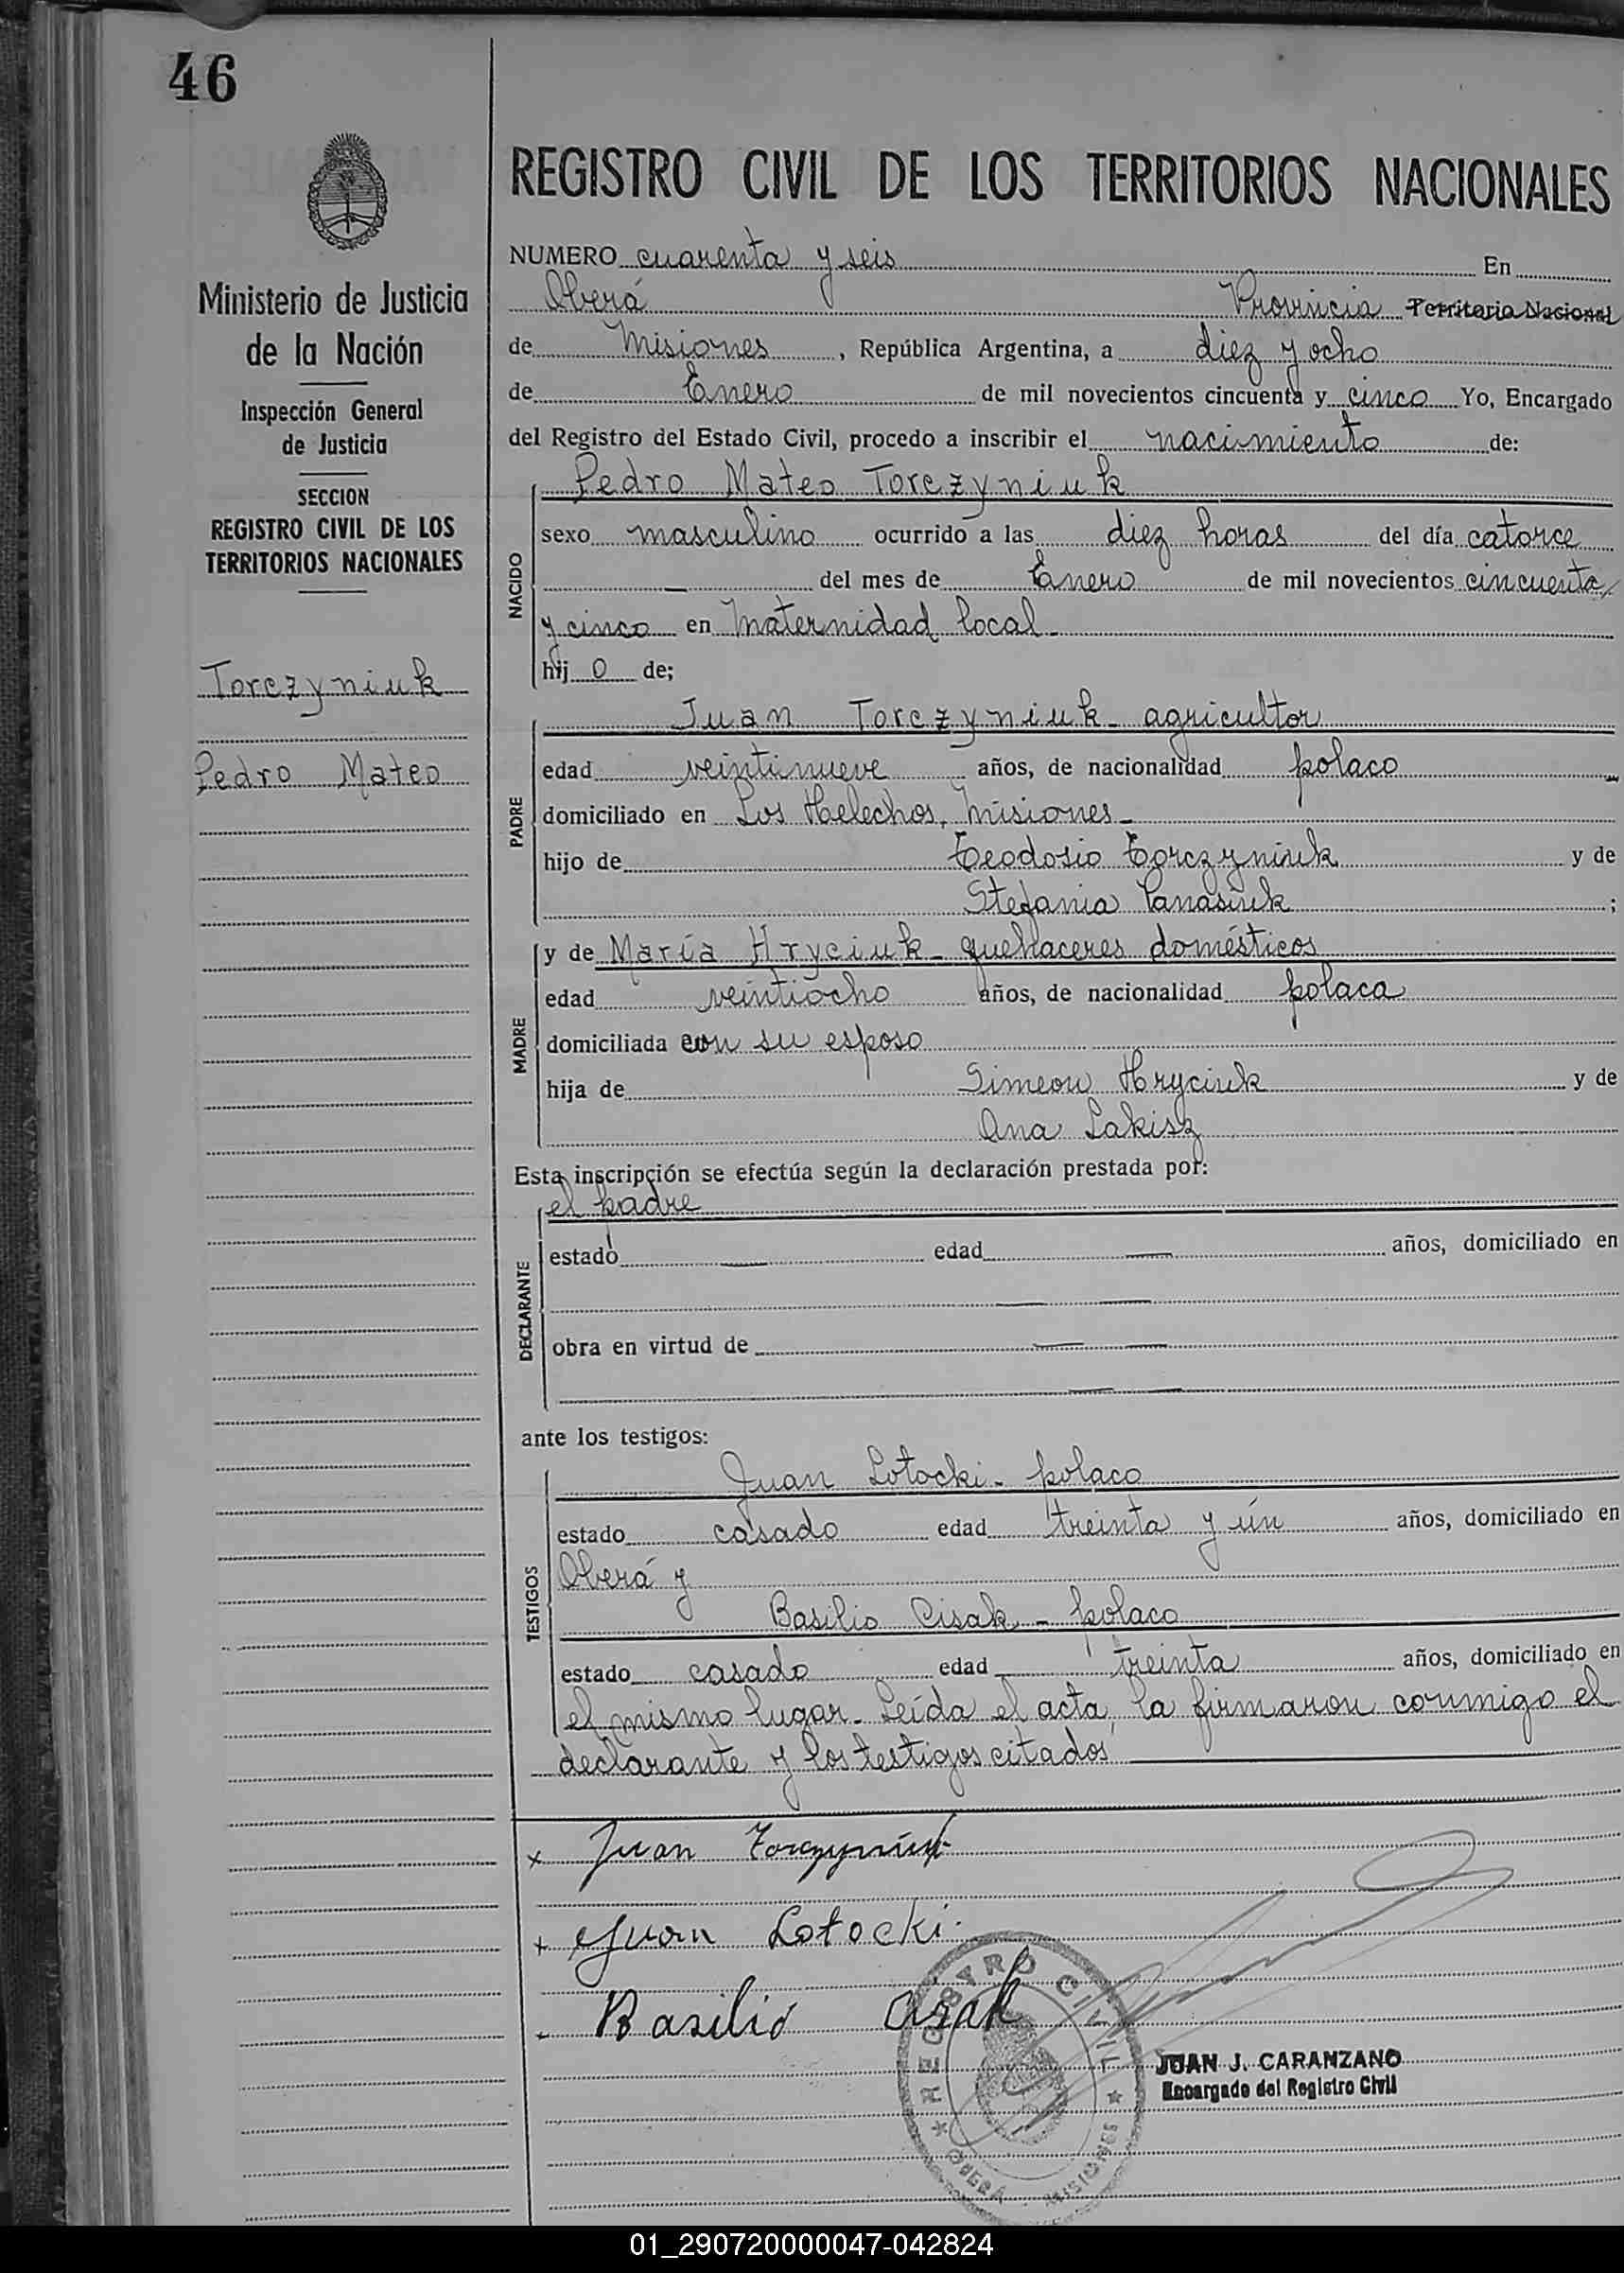 46
Ministerio de Justicia
de la Nación
Inspección General
de Justicia
SECCION
REGISTRO CIVIL DE LOS
TERRITORIOS NACIONALES
Torczyniuk
Pedro Mateo
REGISTRO CIVIL DE LOS TERRITORIOS NACIONALES
NUMERO cuarenta y seis En
Oberá Provincia Territorio Nacional
de Misiones, República Argentina, a diez y ocho
de Enero de mil novecientos cincuenta y cinco Yo, Encargado
del Registro del Estado Civil, procedo a inscribir el nacimiento de:
Pedro Mateo Torczyniuk
NACIDO
sexo masculino ocurrido a las diez horas del día catorce
del mes de Enero de mil novecientos cincuenta
y cinco en Maternidad local
hij o de;
Juan Torczyniuk - agricultor
PADRE
edad veintinueve años, de nacionalidad polaco
domiciliado en Los Helechos, Misiones -
hijo de Teodosio Torczyniuk y de
Stefania Panasiuk ;
MADRE
y de María Hryciuk - quehaceres domésticos
edad veintiocho años, de nacionalidad polaca
domiciliada con su esposo
hija de Simeon Hryciuk y de
Ana Lakisz
Esta inscripción se efectúa según la declaración prestada por:
el padre
DECLARANTE
estado edad años, domiciliado en
obra en virtud de
ante los testigos:
TESTIGOS
Juan Lotocki - polaco
estado casado edad treinta y ún años, domiciliado en
Oberá y
Basilio Cisak - polaco
estado casado edad treinta años, domiciliado en
el mismo lugar - Leída el acta, la firmaron conmigo el
declarante y los testigos citados
x Juan Torczyniuk
+ Juan Lotocki
- Basilio Cisak
REGISTRO CIVIL
OBERÁ MISIONES
JUAN J. CARANZANO
Encargado del Registro Civil
01_290720000047-042824